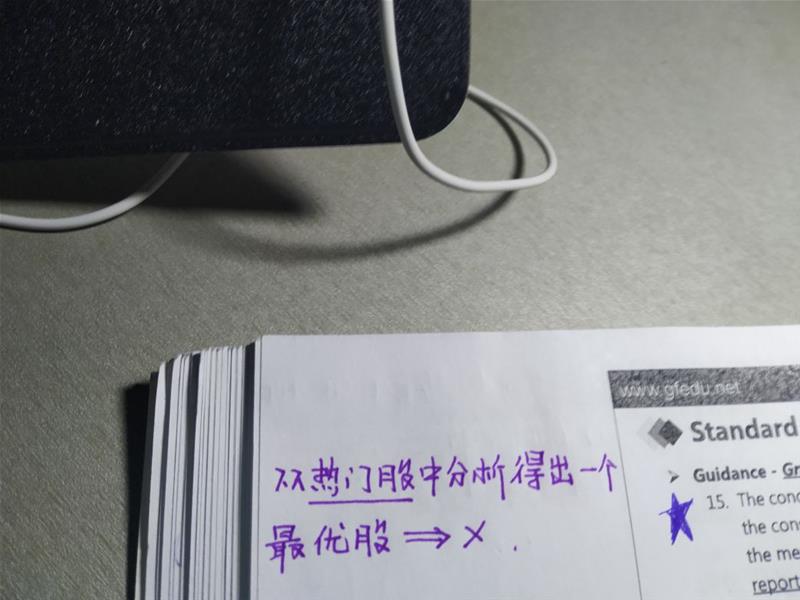 从热门股中分析得出一个
最优股 ⇒ ×.
www.gfedu.net
Standard
Guidance - Gr
15. The conc
the cons
the me
report